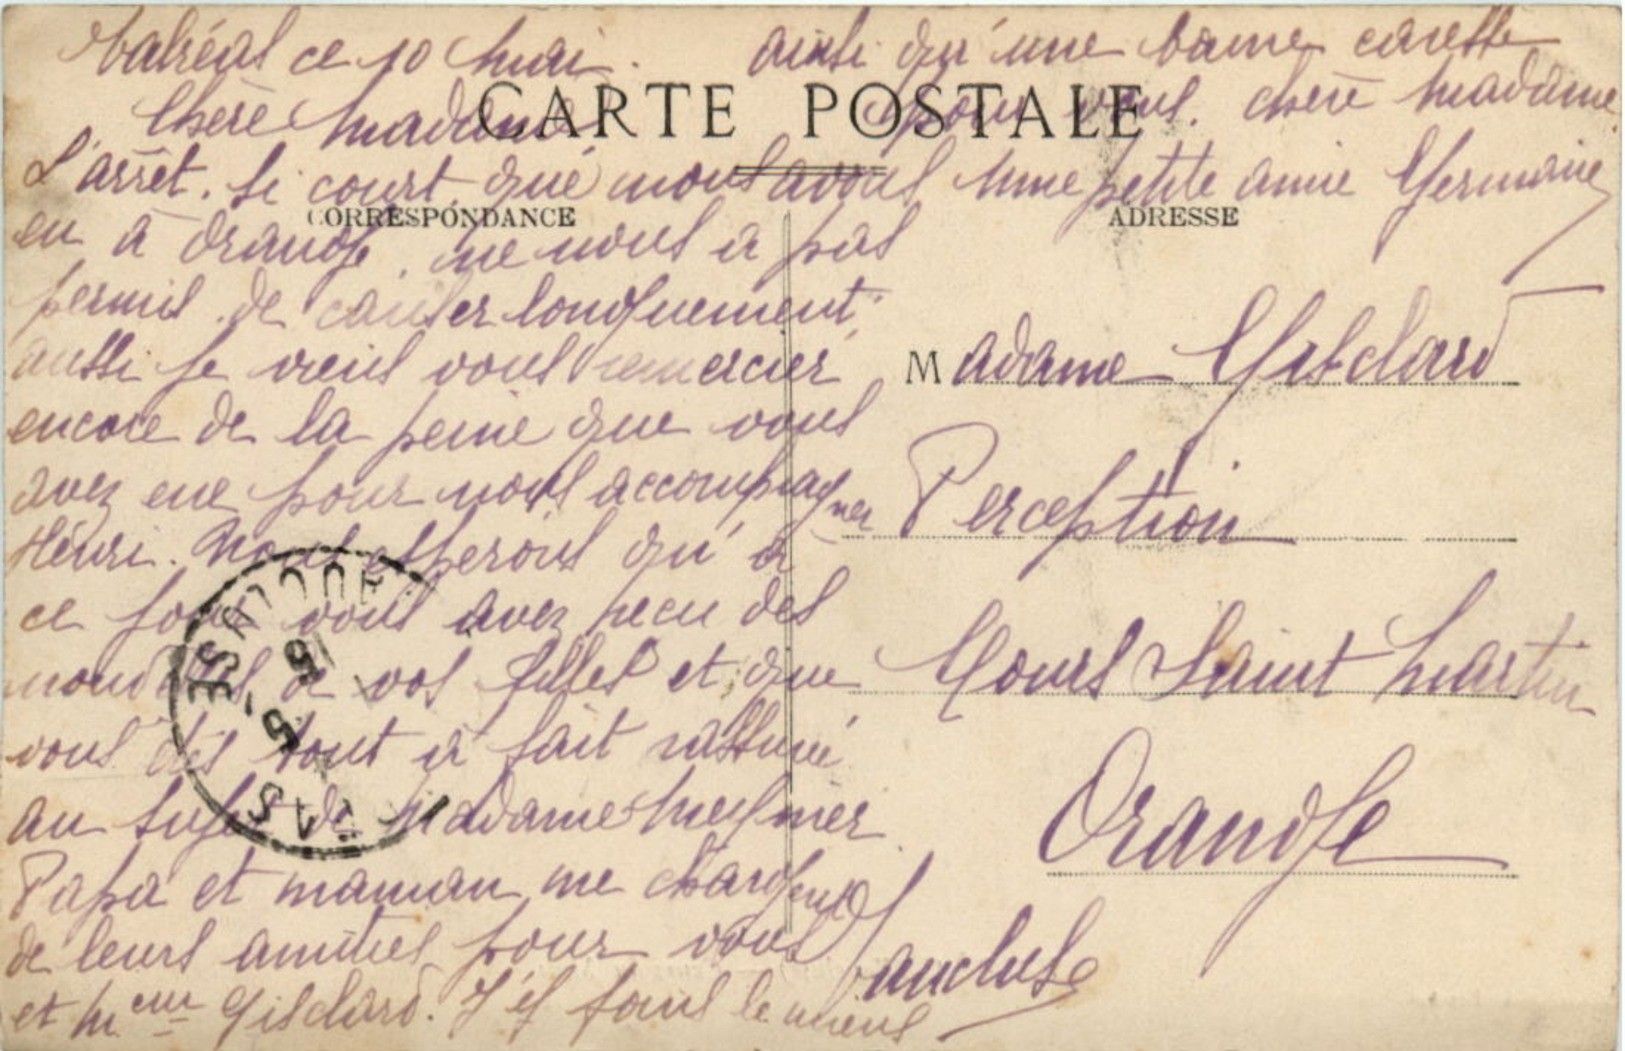 Valréas ce 10 Mai.
Chère Madame
L'arrêt. si court que nous avons
eu à Orange, ne nous a pas
permis de causer longuement,
aussi je viens vous remercier
encore de la peine que vous
avez eue pour nous accompagner
Henri. Nous esperons qu'à
ce jour vous avez recu des
nouvelles de vos filles et que
vous êtes tout à fait rassuré
au sujet de Madame Meynier
Papa et maman me chargent
de leurs amitiés pour vous
et Mr Gisclard. J'y joins le miens
ainsi qu'une bonne caresse
pour vous. chère Madame.
Mme petite amie Germaine
CARTE POSTALE
CORRESPONDANCE
ADRESSE
Madame Gisclard
Perception
Cours Saint Martin
Orange
Vaucluse
VAUCLUSE